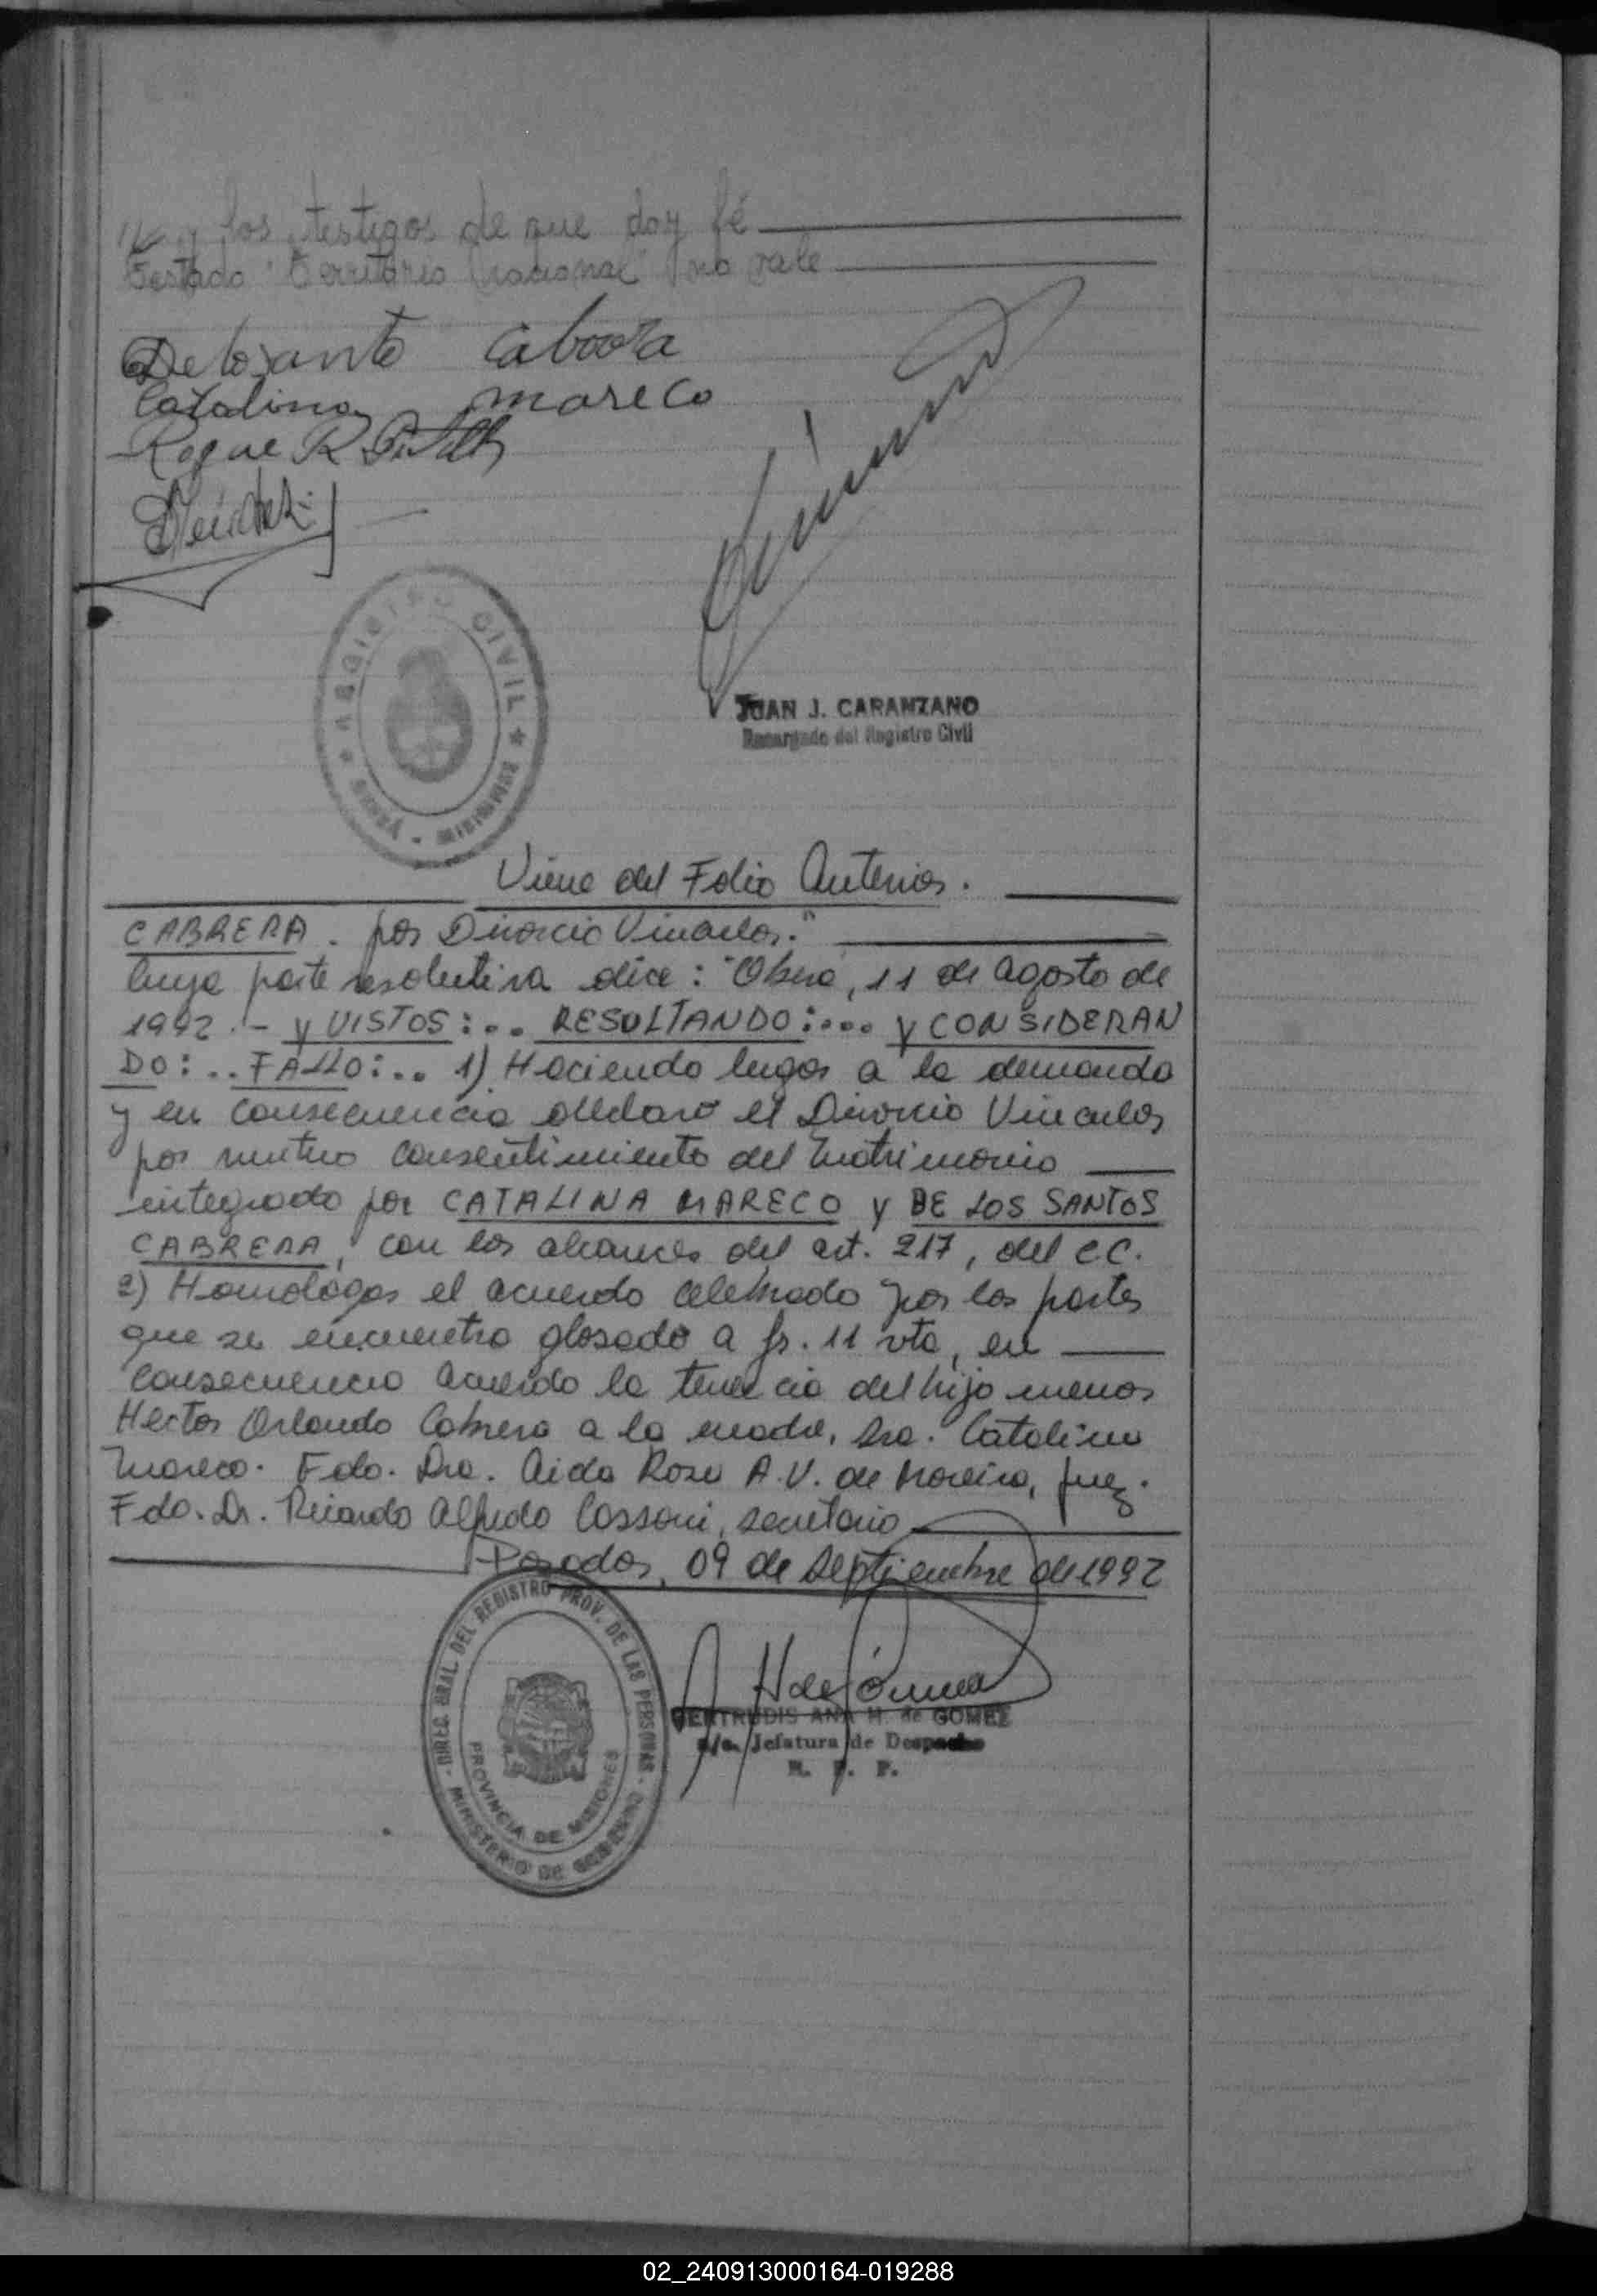 y los testigos de que doy fé
Testado "Territorio Nacional" no vale
Delosanto Cabrera
Catalina mareco
Roque R.
REGISTRO CIVIL
MISIONES
JUAN J. CARANZANO
Encargado del Registro Civil
Viene del Folio Anterior.
CABRERA. por Divorcio Vincular."
Cuya parte resolutiva dice: "Oberá, 11 de Agosto de
1992.- y VISTOS:.. RESULTANDO:.... y CONSIDERAN
DO:.. FALLO:.. 1) Haciendo lugar a la demanda
y en consecuencia declaro el Divorcio Vincular
por mutuo consentimiento del Matrimonio
integrado por CATALINA MARECO y DE LOS SANTOS
CABRERA, con los alcances del art. 217, del C.C.
2) Homologar el acuerdo celebrado por las partes
que se encuentra glosado a fs. 11 vta, en
consecuencia acuerdo la tenencia del hijo menor
Hector Orlando Cabrera a la madre, Sra. Catalina
Mareco. Fdo. Dra. Aida Rosa A.V. de Moreira, Juez.
Fdo. Dr. Ricardo Alfredo Cassoni, secretario
Posadas, 09 de Septiembre de 1992
DIREC. GRAL. DEL REGISTRO PROV. DE LAS PERSONAS
PROVINCIA DE MISIONES
MINISTERIO DE GOBIERNO
GERTRUDIS ANA H. de GOMEZ
a/c. Jefatura de Despacho
R. P. P.
02_240913000164-019288